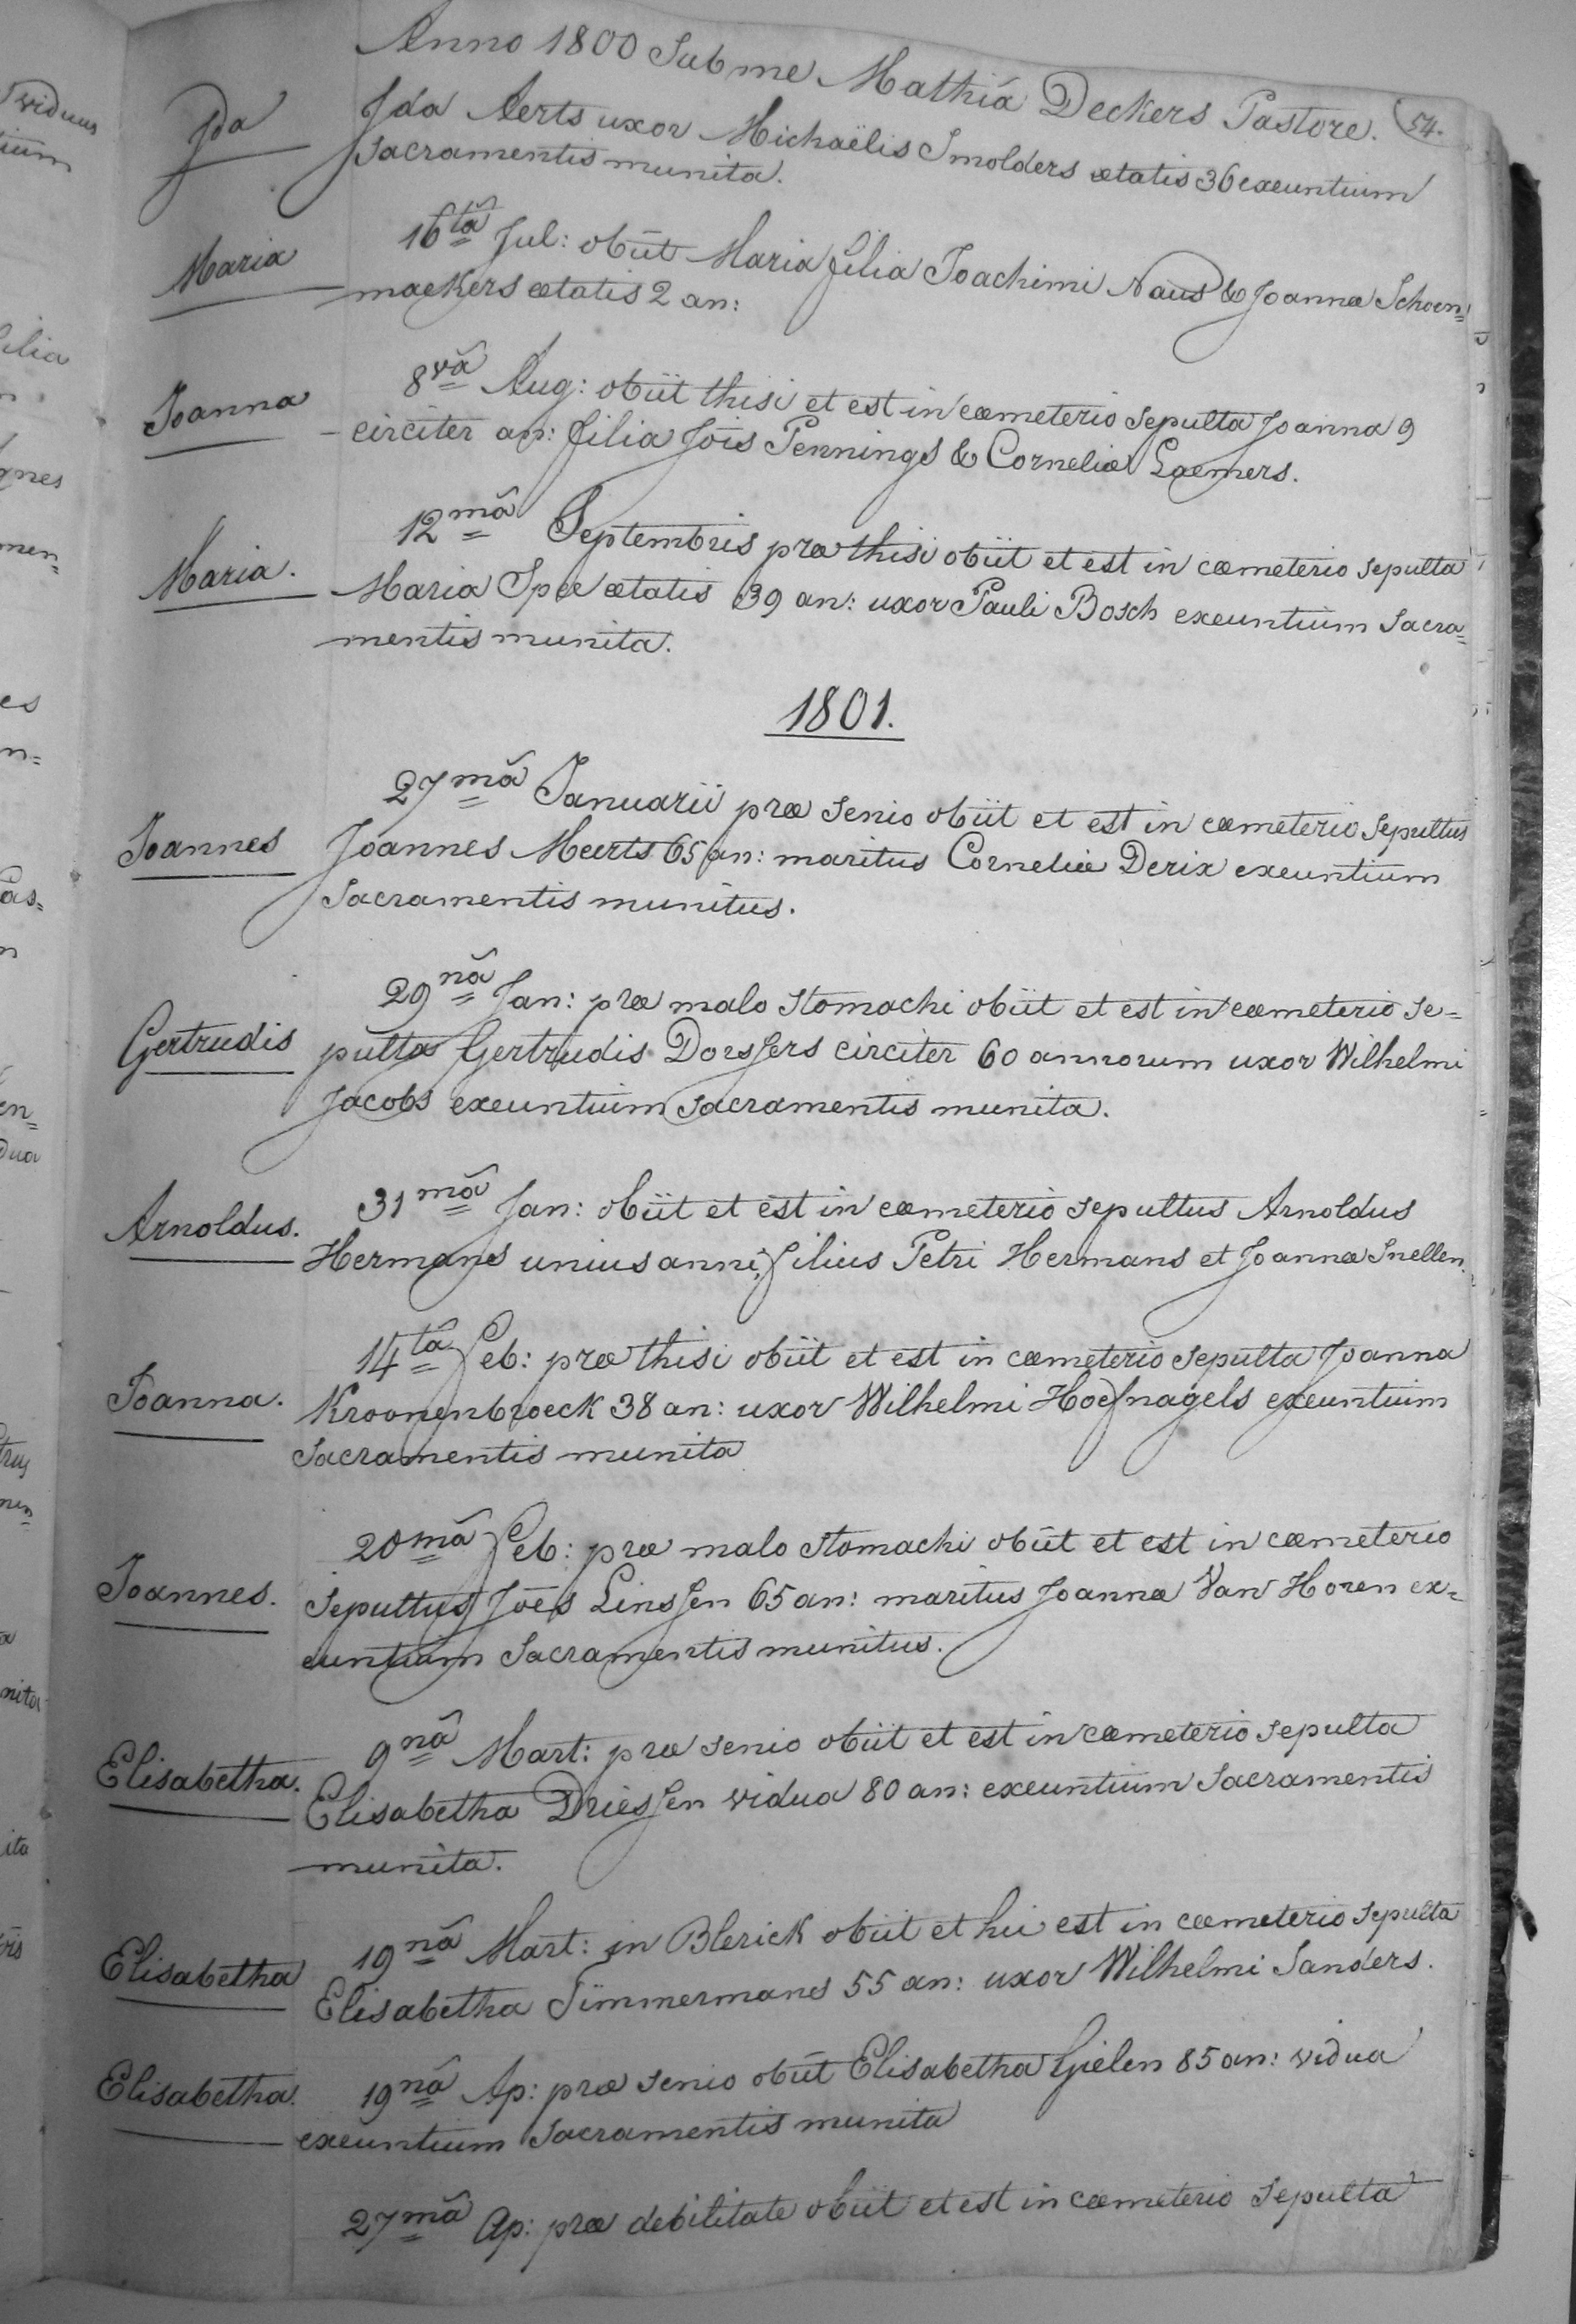 Anno 1800 Sub me Mathiâ Deckers Pastore. 54.
Ida Ida Aerts uxor Michaëlis Smolders ætatis 36 exeuntium
Sacramentis munita.
Maria 16tâ Jul: obiit Maria filia Joachimi Naus & Joannæ Schoen=
maekers ætatis 2 an:
Joanna 8vâ Aug: obiit thisi et est in cœmeterio sepulta Joanna 9
circiter an: filia Jois Pennings & Corneliæ Laemers.
Maria. 12mâ Septembris præ thisi obiit et est in cœmeterio sepulta
Maria Spee ætatis 39 an: uxor Pauli Bosch exeuntium Sacra=
mentis munita.
1801.
27mâ Januarii præ senio obiit et est in cœmeterio sepultus
Joannes Joannes Meerts 65 an: maritus Corneliæ Derix exeuntium
Sacramentis munitus.
29nâ Jan: præ malo stomachi obiit et est in cœmeterio se=
Gertrudis pulta Gertrudis Dorssers circiter 60 annorum uxor Wilhelmi
Jacobs exeuntium Sacramentis munita.
31mâ Jan: obiit et est in cœmeterio sepultus Arnoldus
Arnoldus. Hermans unius anni, filius Petri Hermans et Joannæ Snellen.
14tâ Feb: præ thisi obiit et est in cœmeterio sepulta Joanna
Joanna. Kroonenbroeck 38 an: uxor Wilhelmi Hoefnagels exeuntium
Sacramentis munita
20mâ Feb: præ malo stomachi obiit et est in cœmeterio
Joannes. Sepultus Joës Linssen 65 an: maritus Joannæ Van Horen ex=
euntium Sacramentis munitus.
9nâ Mart: præ senio obiit et est in cœmeterio sepulta
Elisabetha. Elisabetha Driessen vidua 80 an: exeuntium Sacramentis
munita.
Elisabetha 19nâ Mart: in Blerick obiit et hic est in cœmeterio sepulta
Elisabetha Timmermans 55 an: uxor Wilhelmi Sanders.
Elisabetha. 19nâ Ap: præ senio obiit Elisabetha Gielen 85 an: vidua
exeuntium Sacramentis munita
27mâ Ap: præ debilitate obiit et est in cœmeterio Sepulta